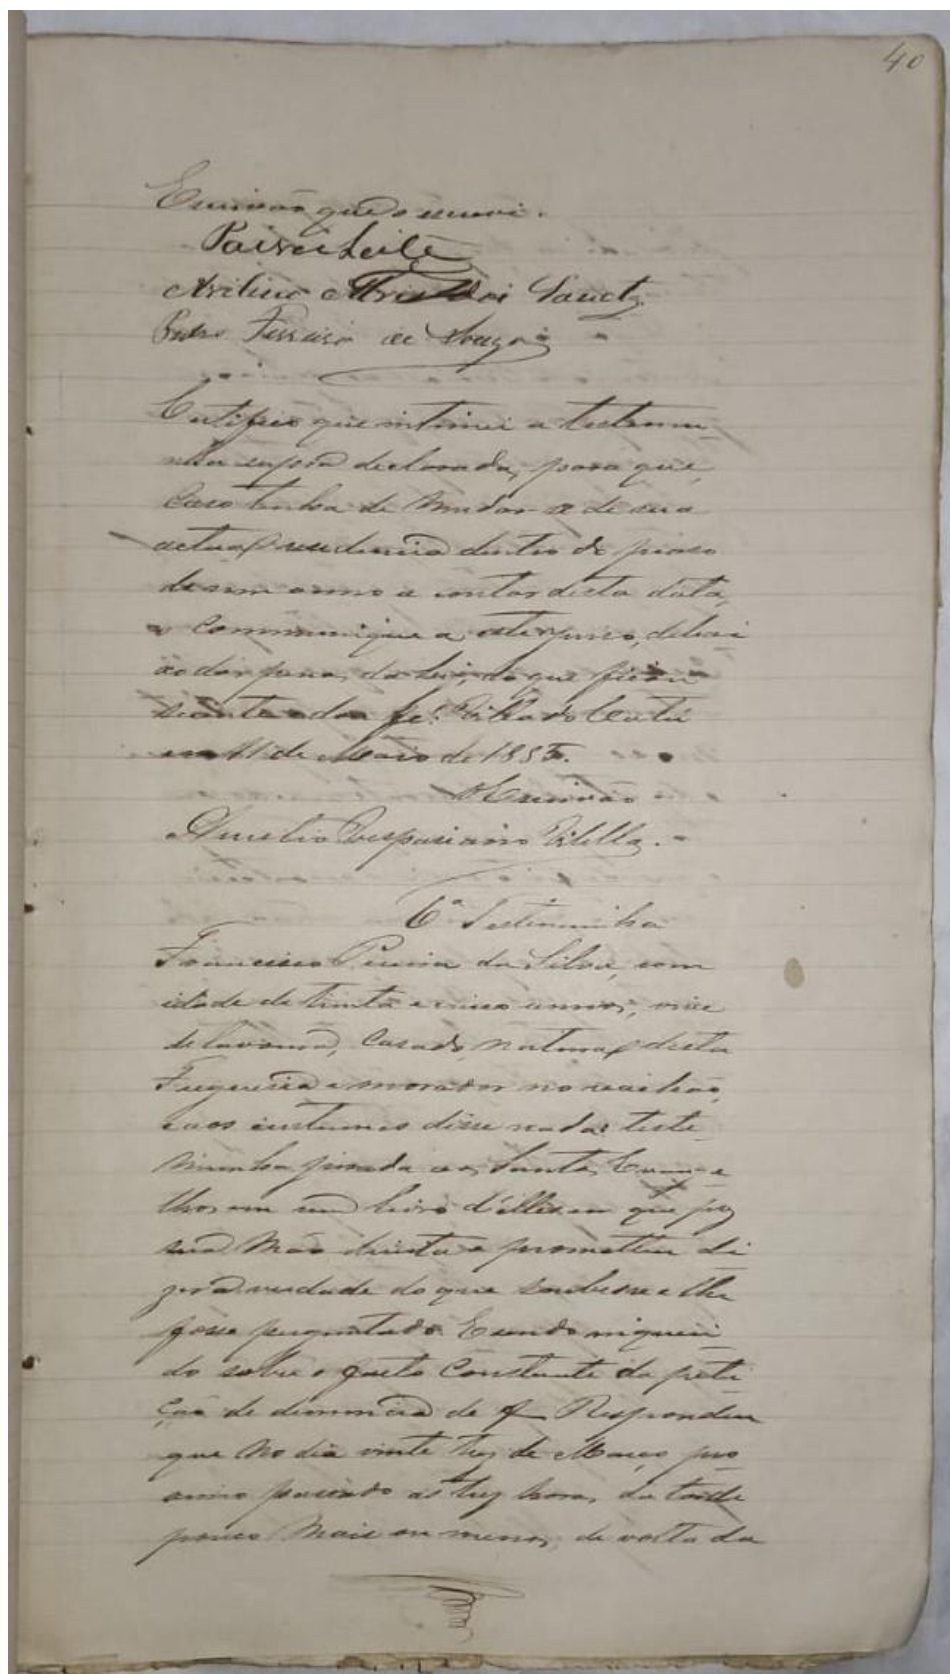 40
Escrivão que o escrevi.
Paiva Leite
Avelino Alves dos Sanctos
Pedro Ferreira de Souza
Certifico que intimei a testemu-
nha supra declarada, para que,
caso tenha de mudar-se de sua
actual residencia dentro do praso
de um anno a contar desta data,
o communique a este juizo, debai-
xo das penas da lei, do que ficou
sciente e dou fé. Villa do Catú
em 11 de Maio de 1885.
O Escrivão
Aurelio Vespasiano Vilella.
6ª Testemunha
Francisco Pereira da Silva, com
idade de trinta e cinco annos, vive
de lavoura, casado, natural desta
Freguesia e morador no
e aos custumes disse nada: teste-
munha jurada aos Santos Evange-
lhos em um livro d'elles em que poz
sua mão direita e prometteu di-
zer a verdade do que soubesse e lhe
fosse perguntado. E sendo inqueri-
do sobre o facto constante da peti-
ção de denuncia de f Respondeu
que no dia vinte trez de Março pro-
ximo passado as trez horas da tarde
pouco mais ou menos, de volta da